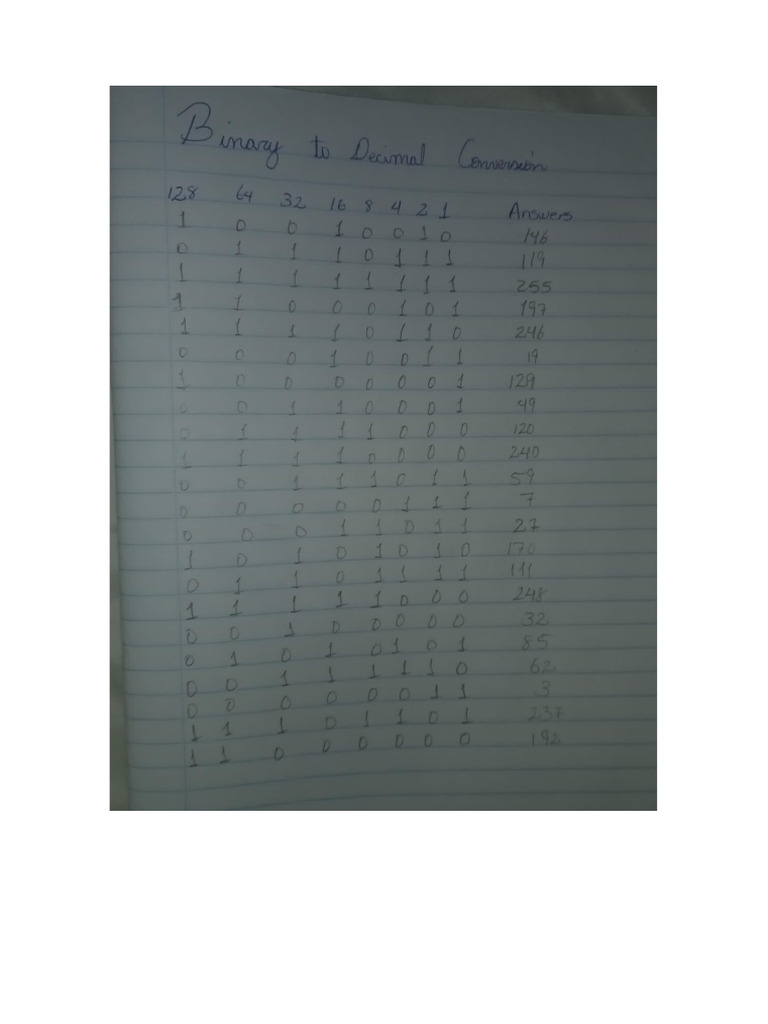 Binary to Decimal Conversion
128 64 32 16 8 4 2 1 Answers
1 0 0 1 0 0 1 0 146
0 1 1 1 0 1 1 1 119
1 1 1 1 1 1 1 1 255
1 1 0 0 0 1 0 1 197
1 1 1 1 0 1 1 0 246
0 0 0 1 0 0 1 1 19
1 0 0 0 0 0 0 1 129
0 0 1 1 0 0 0 1 49
0 1 1 1 1 0 0 0 120
1 1 1 1 0 0 0 0 240
0 0 1 1 1 0 1 1 59
0 0 0 0 0 1 1 1 7
0 0 0 1 1 0 1 1 27
1 0 1 0 1 0 1 0 170
0 1 1 0 1 1 1 1 111
1 1 1 1 1 0 0 0 248
0 0 1 0 0 0 0 0 32
0 1 0 1 0 1 0 1 85
0 0 1 1 1 1 1 0 62
0 0 0 0 0 0 1 1 3
1 1 1 0 1 1 0 1 237
1 1 0 0 0 0 0 0 192